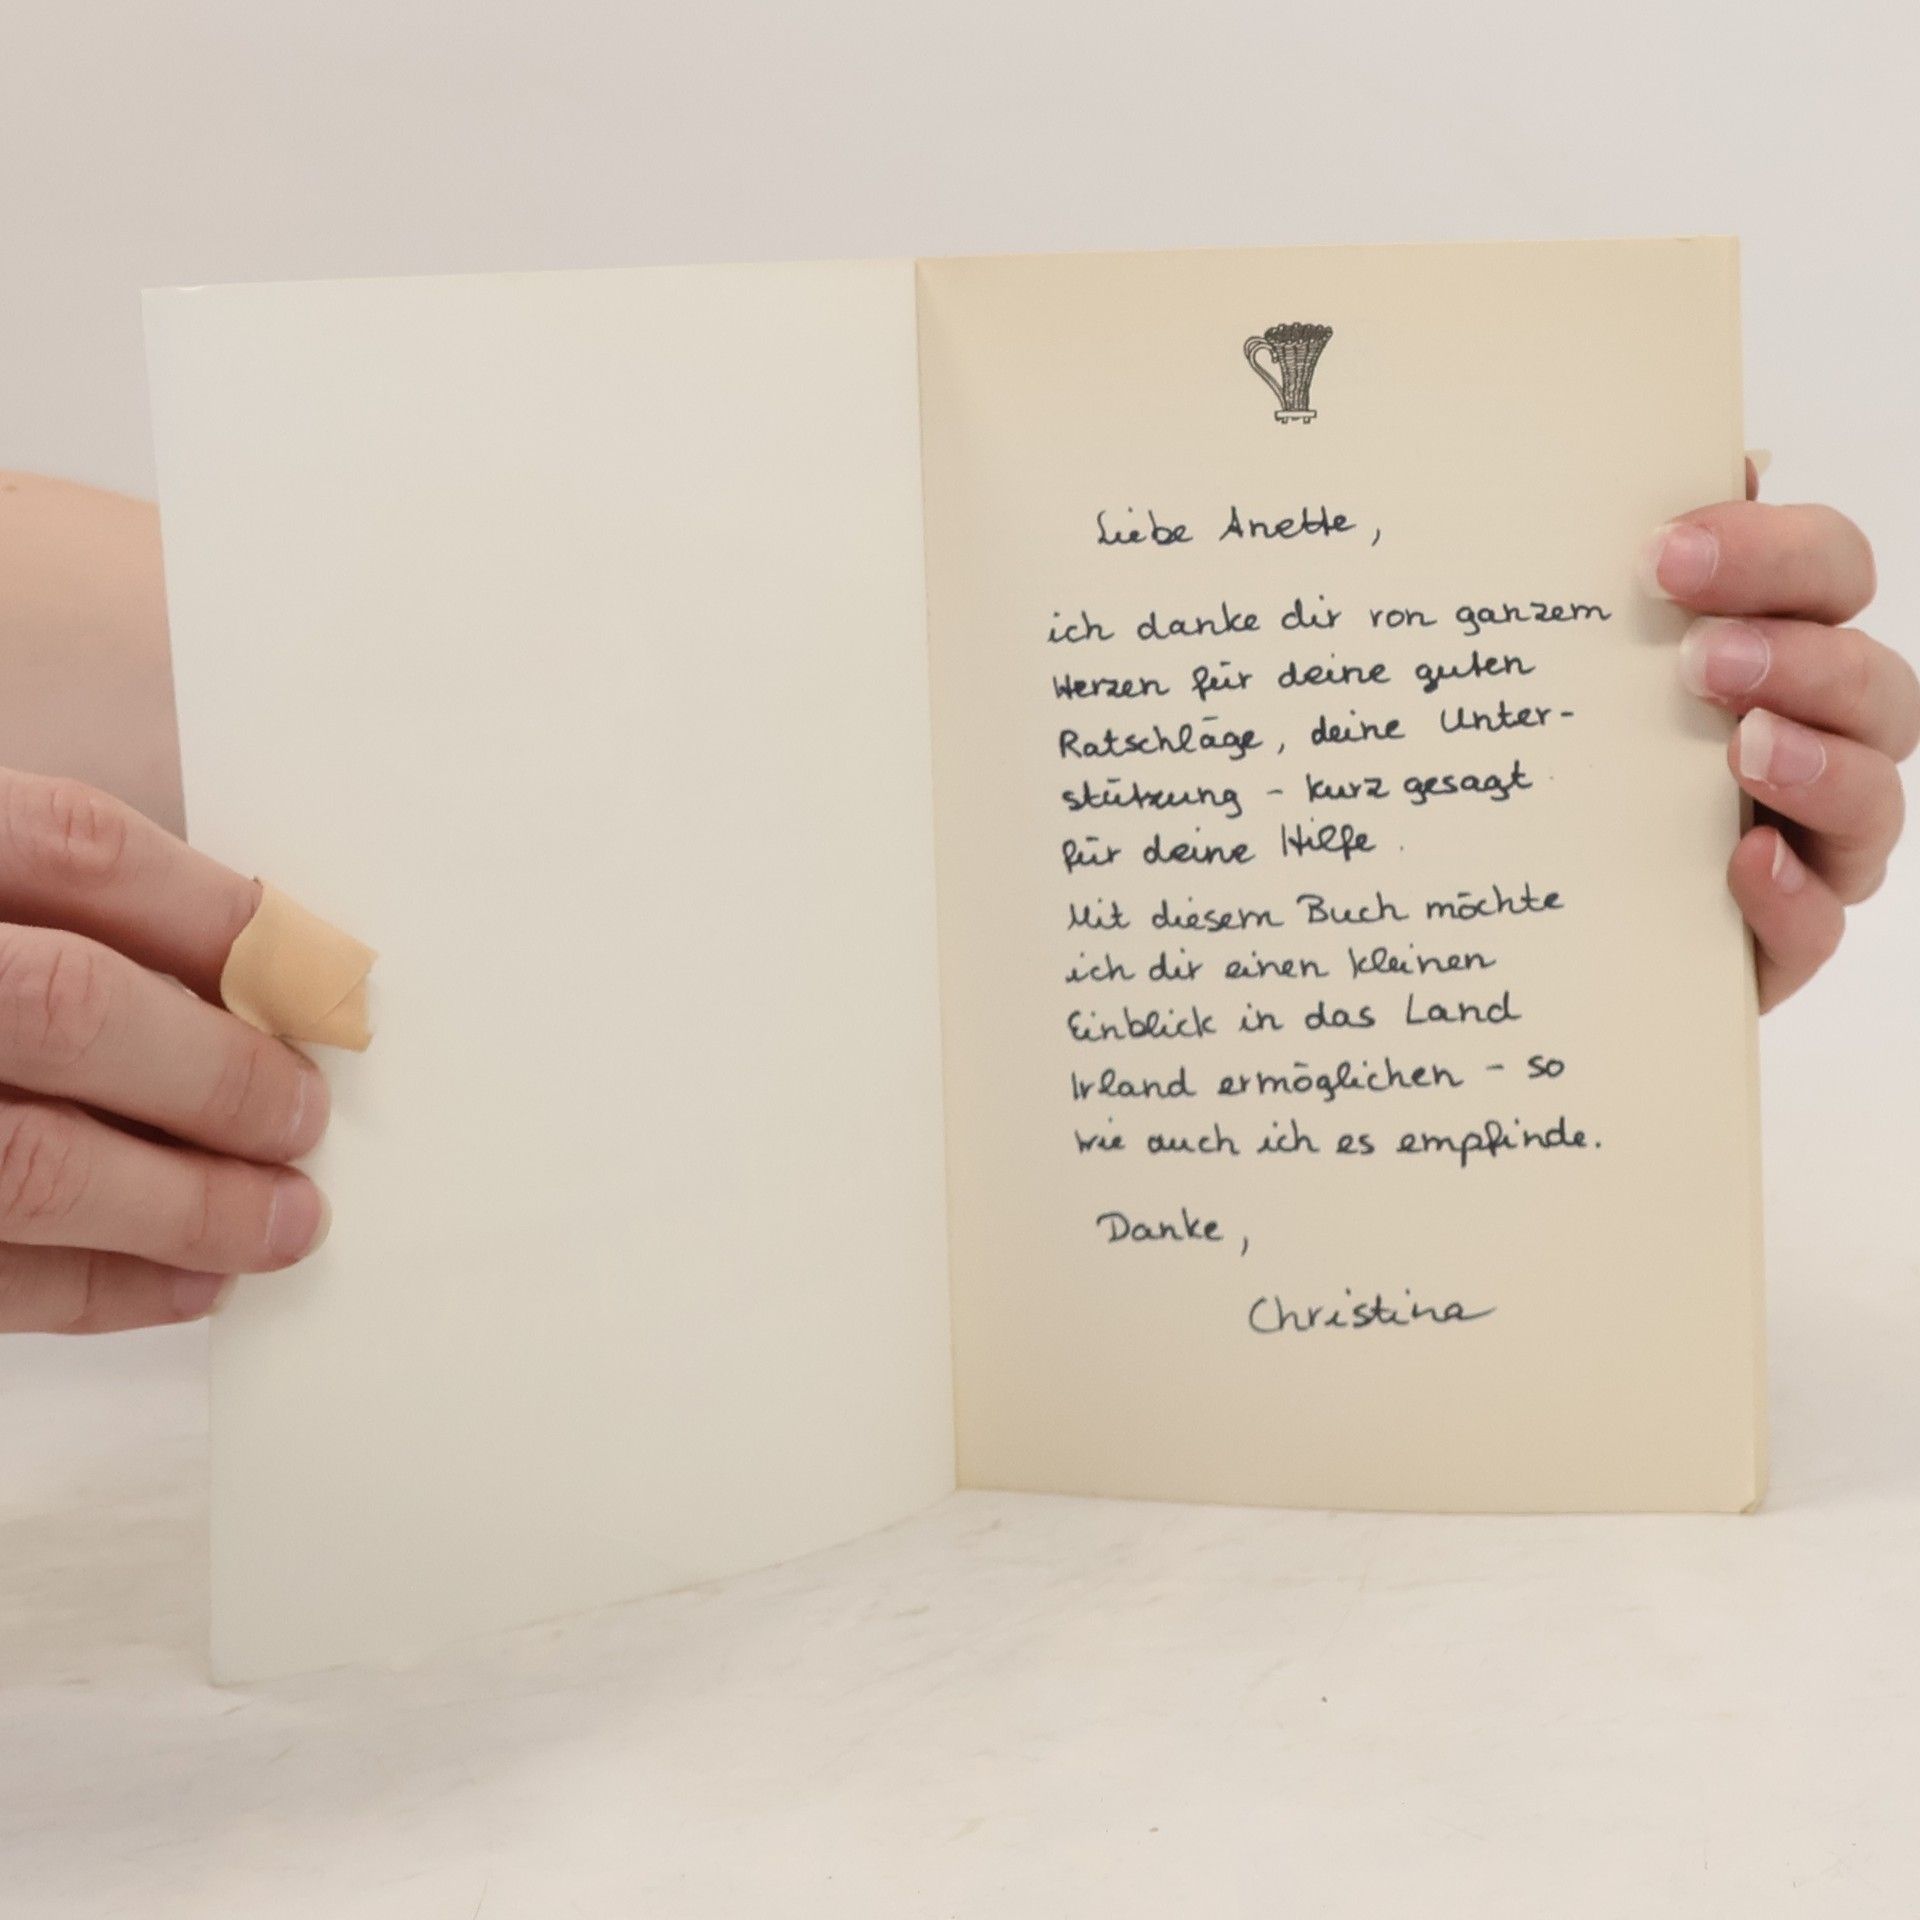 Liebe Anette,
ich danke dir von ganzem
Herzen für deine guten
Ratschläge, deine Unter-
stützung - kurz gesagt
für deine Hilfe.
Mit diesem Buch möchte
ich dir einen kleinen
Einblick in das Land
Irland ermöglichen - so
wie auch ich es empfinde.
Danke,
Christina